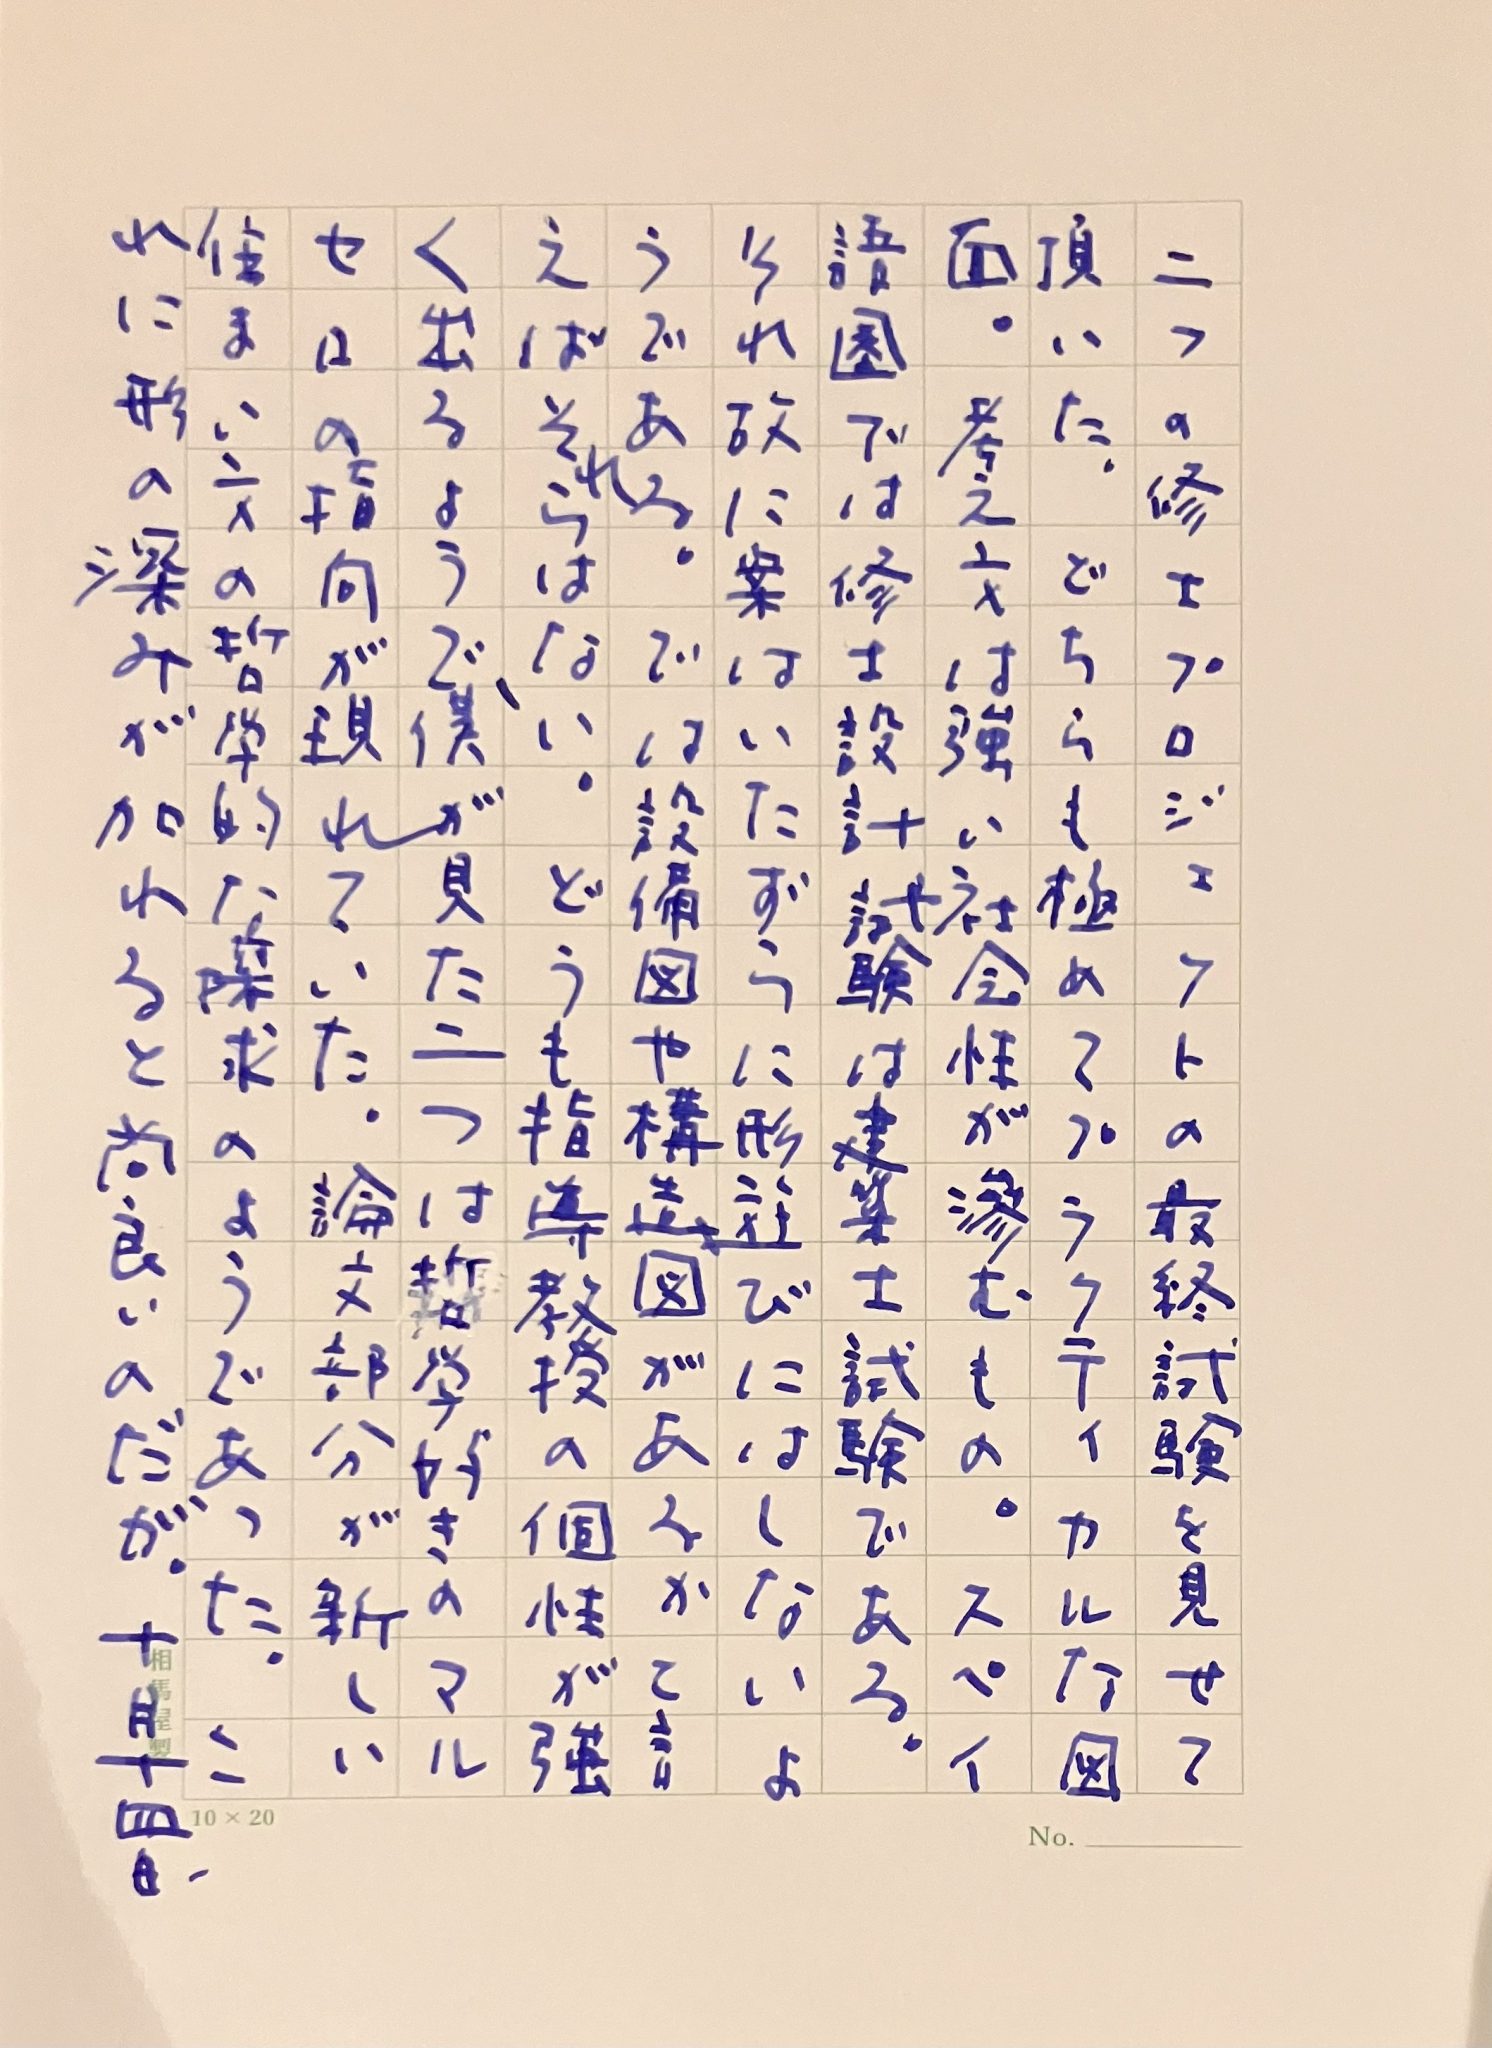 二つの修士プロジェクトの最終試験を見せて
頂いた。どちらも極めてプラクティカルな図
面。考え方は強い社会性が滲むもの。スペイ
語圏では修士設計試験は建築士試験である。
それ故に案はいたずらに形遊びにはしないよ
うである。では設備図や構造図があるかと言
えばそれらはない。どうも指導教授の個性が強
く出るようで、僕が見た二つは哲学好きのマル
セロの指向が現れていた。論文部分が新しい
住まい方の哲学的な探求のようであった。こ
れに形の深みが加わると尚良いのだが。十月十四日
相馬屋製
10×20
No.